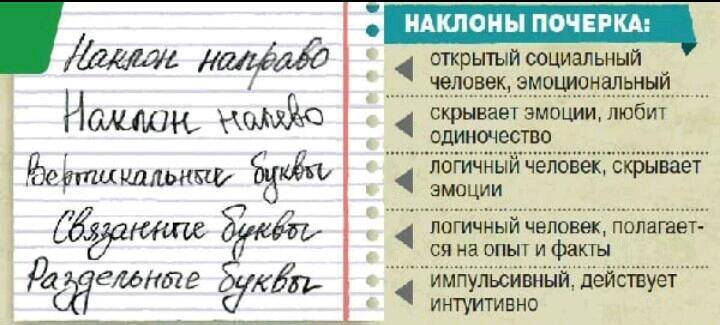 Наклон направо
Наклон налево
Вертикальные буквы
Связанные буквы
Раздельные буквы
НАКЛОНЫ ПОЧЕРКА:
открытый социальный
человек, эмоциональный
скрывает эмоции, любит
одиночество
логичный человек, скрывает
эмоции
логичный человек, полагает-
ся на опыт и факты
импульсивный, действует
интуитивно